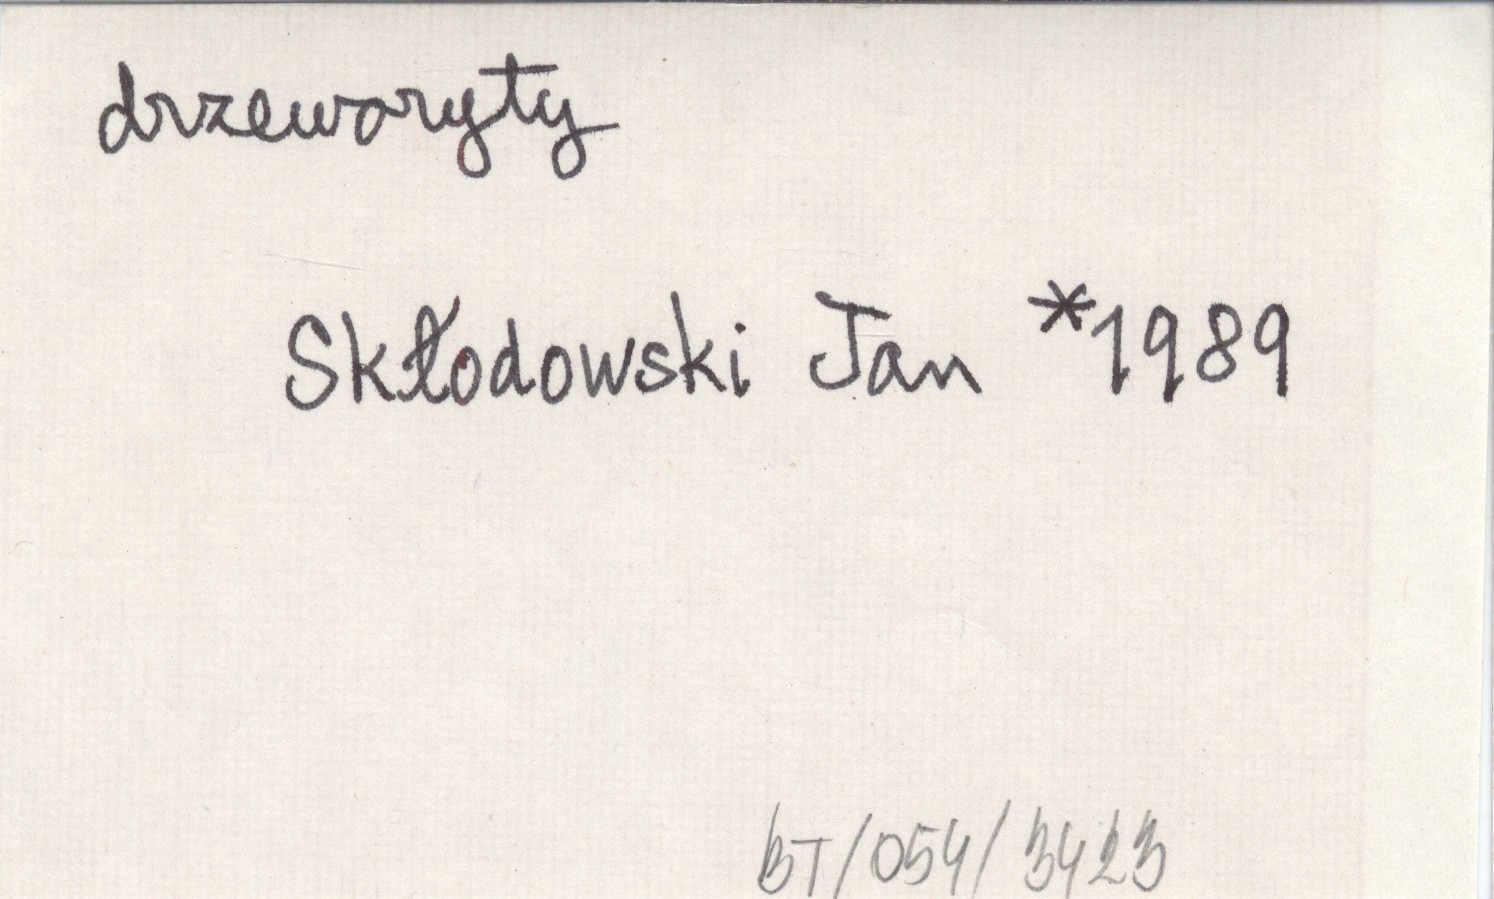 drzeworyty
Skłodowski Jan *1989
BT/054/3423